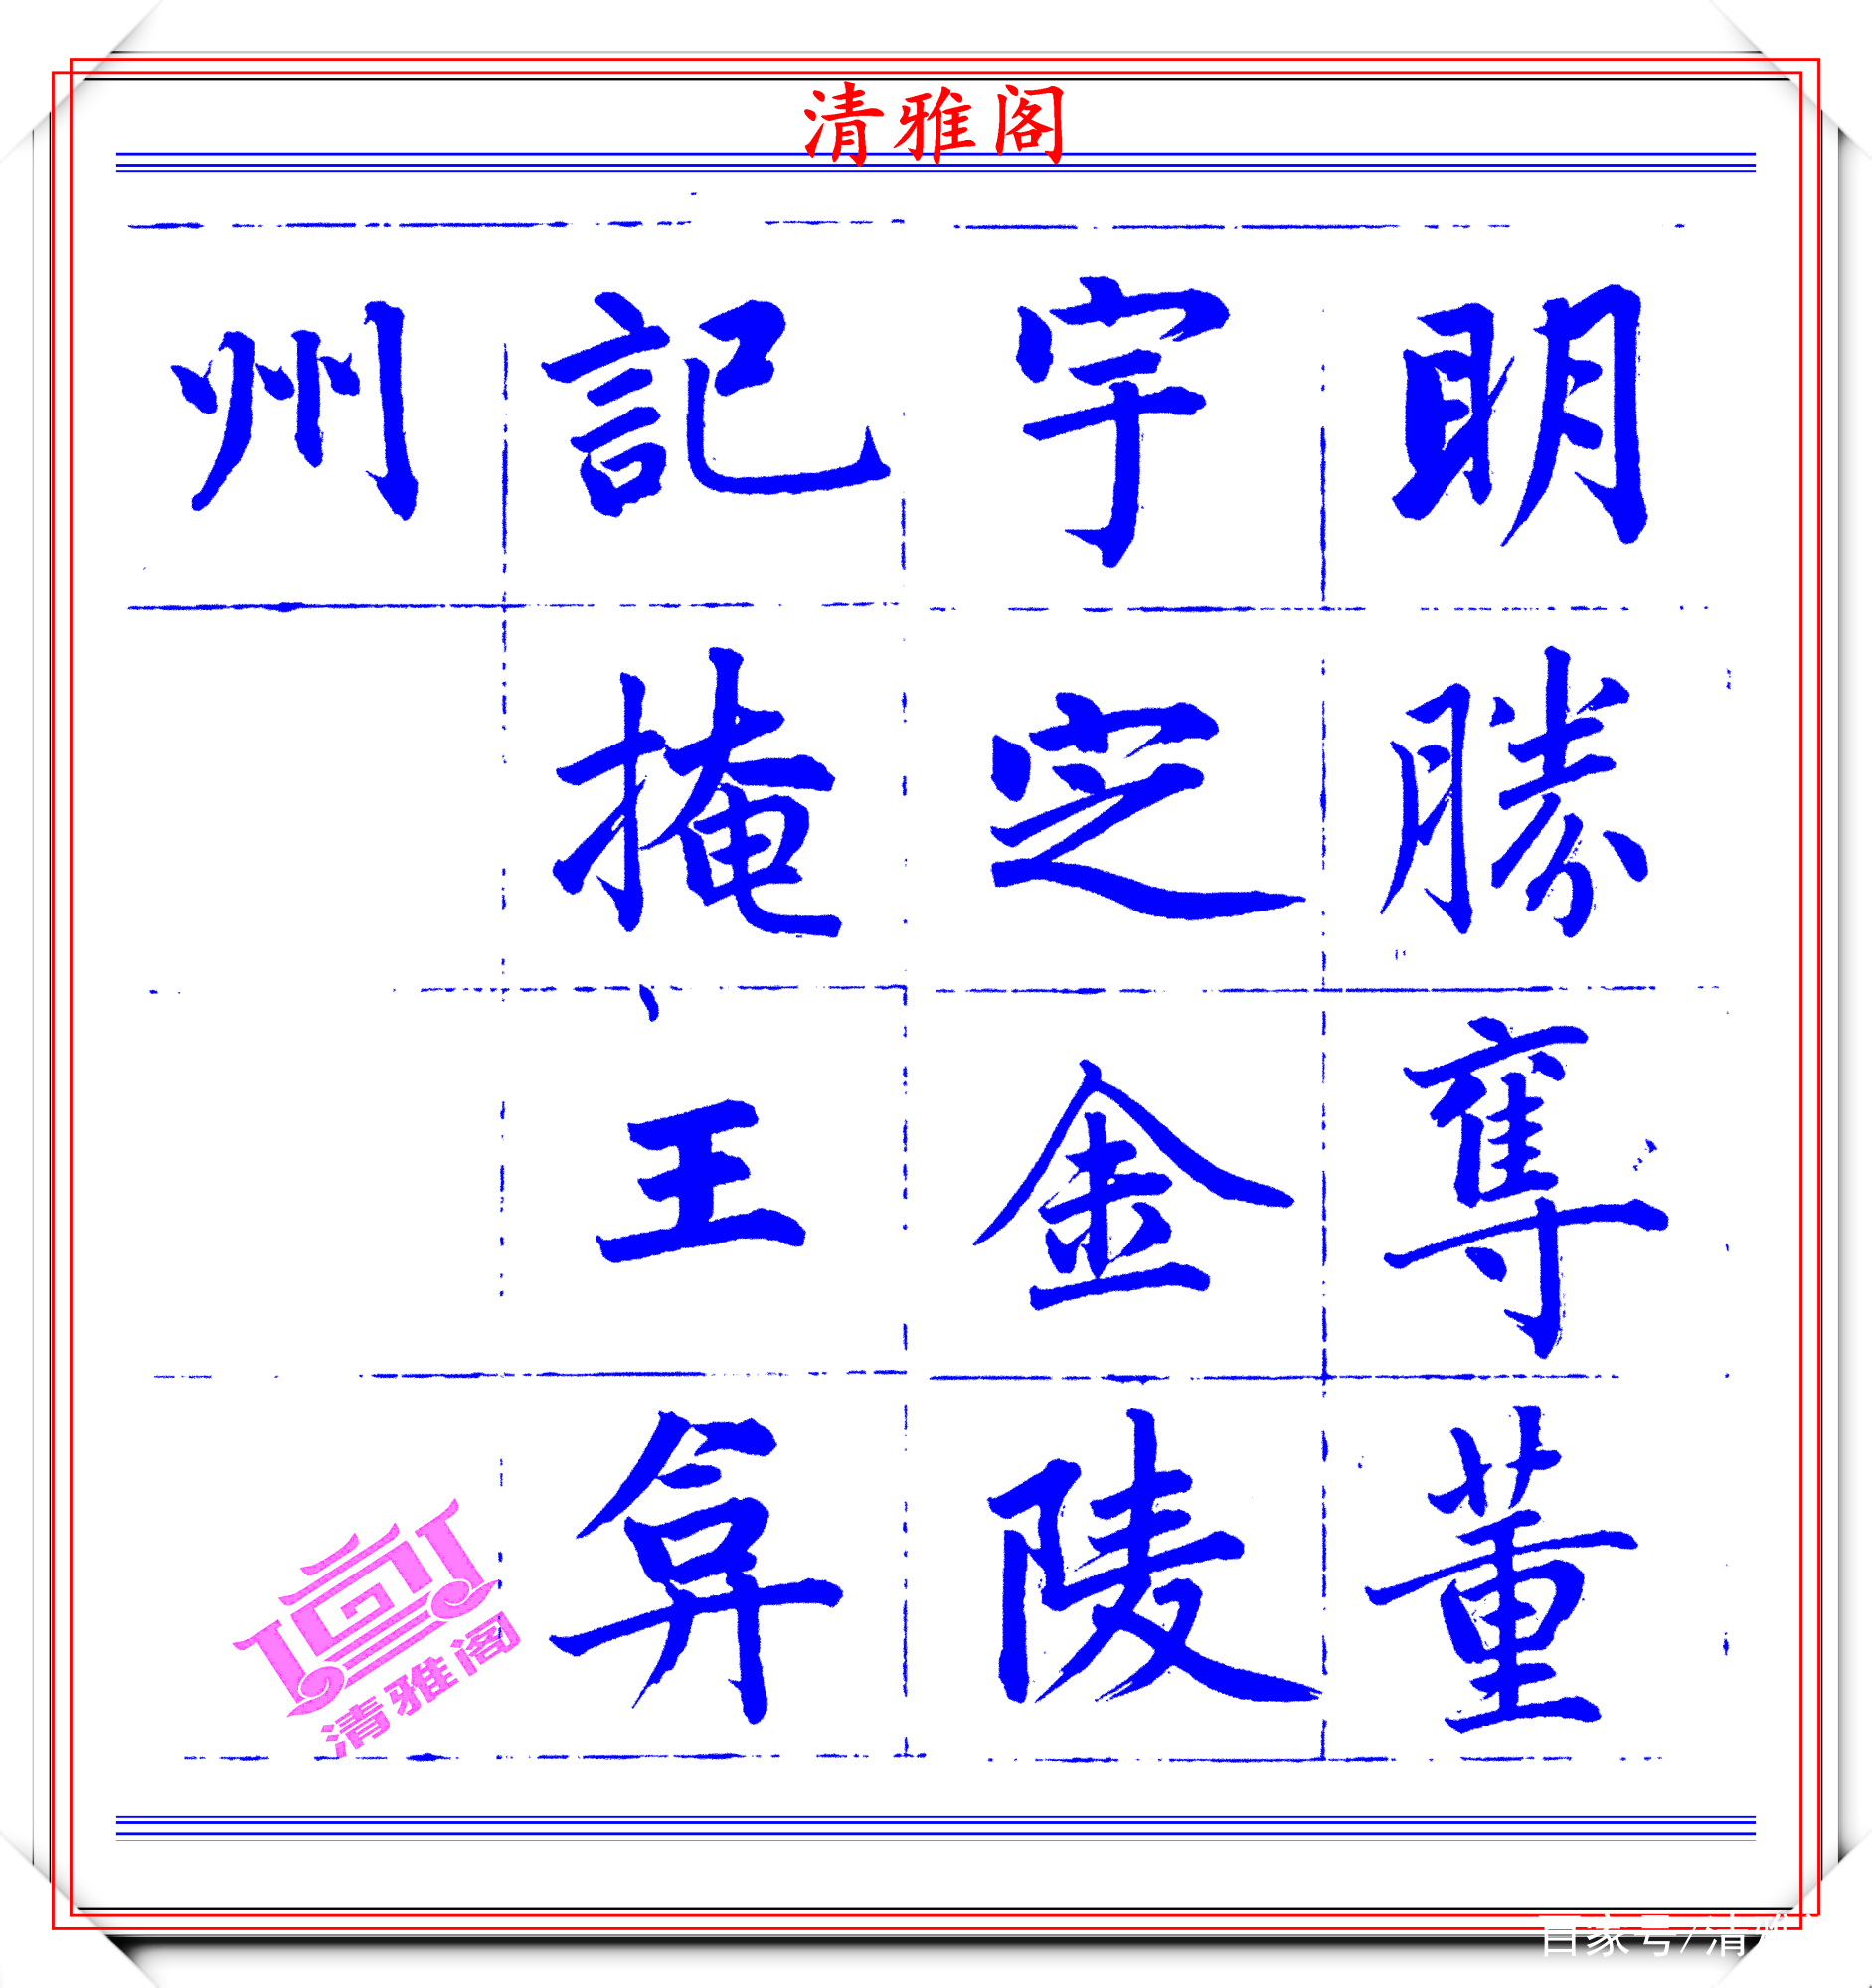 清雅阁
明勝奪董
宇㝎金陵
記掩王弇
州
清雅阁
百家号/清雅